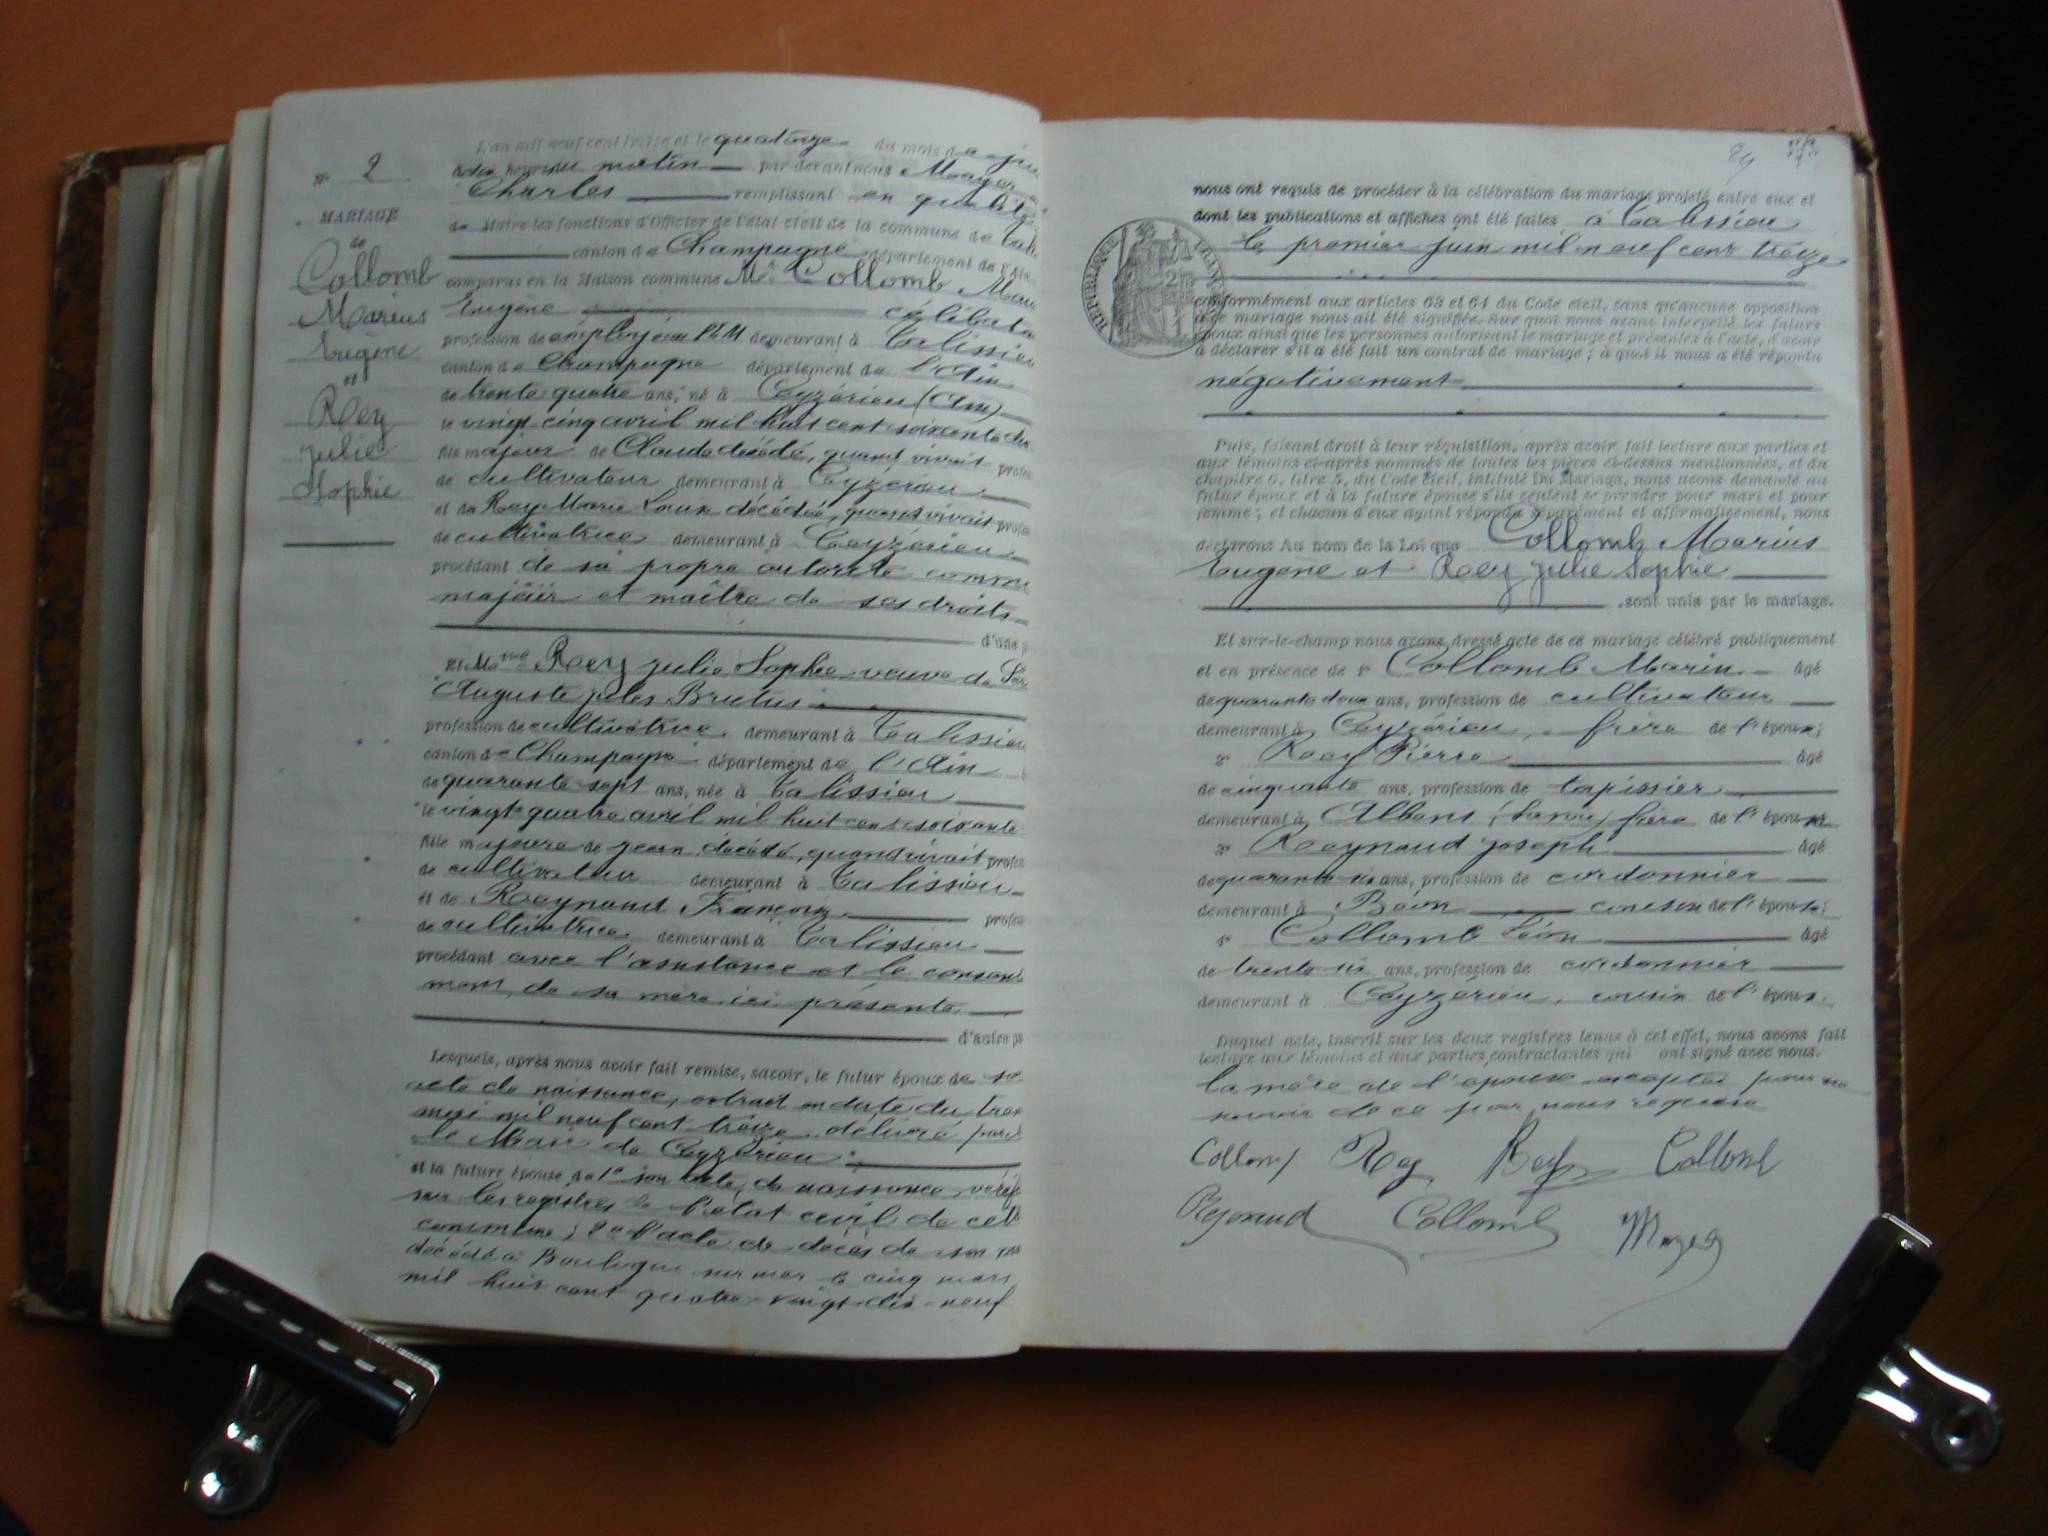 N° 2
MARIAGE
de
Collomb
Marius
Eugène
et
Rey
Julie
Sophie
L'an mil neuf cent treize et le quatorze du mois de
heures du matin par-devant nous Mayer
Charles remplissant en qualité
de Maire les fonctions d'Officier de l'état civil de la commune de
canton de Champagne département de l'Ain
comparus en la Maison commune Mr Collomb
Eugène
profession de employé au PLM demeurant à Talissieu
canton de Champagne département de l'Ain
de trente quatre ans, né à Ceyzérieu (Ain)
le vingt cinq avril mil huit cent soixante
fils majeur de Claude décédé, quand vivait
de cultivateur demeurant à Ceyzérieu
et de Rey Marie Louise décédée, quand vivait
de cultivatrice demeurant à Ceyzérieu
procédant de sa propre autorité comme
majeur et maître de ses droits
d'une
Et Mme Rey Julie Sophie veuve de
Auguste Jules Brutus
profession de cultivatrice demeurant à Talissieu
canton de Champagne département de l'Ain
de quarante sept ans, née à Talissieu
le vingt quatre avril mil huit cent soixante
fille majeure de Jean décédé, quand vivait
de cultivateur demeurant à Talissieu
et de Reynaud Françoise
de cultivatrice demeurant à Talissieu
procédant avec l'assistance et le consente
ment de sa mère ici présente
d'autre
Lesquels, après nous avoir fait remise, savoir, le futur époux de
acte de naissance, extrait en date du
mai mil neuf cent treize délivré
le Maire de Ceyzérieu
et la future épouse de 1° son acte de naissance
sur les registres de l'état civil de
commune; 2° l'acte de décès de son
décédé à Boulogne sur mer le cinq mars
mil huit cent quatre-vingt-dix-neuf
29
nous ont requis de procéder à la célébration du mariage projeté entre eux et
dont les publications et affiches ont été faites à Talissieu
le premier juin mil neuf cent treize
REPUBLIQUE FRANÇAISE
conformément aux articles 63 et 64 du Code civil, sans qu'aucune opposition
à ce mariage nous ait été signifiée. Sur quoi nous avons interpellé les futurs
époux ainsi que les personnes autorisant le mariage et présentes à l'acte, d'avoir
à déclarer s'il a été fait un contrat de mariage; à quoi il nous a été répondu
négativement
Puis, faisant droit à leur réquisition, après avoir fait lecture aux parties et
aux témoins ci-après nommés de toutes les pièces ci-dessus mentionnées, et du
chapitre 6, titre 5, du Code Civil, intitulé Du Mariage, nous avons demandé au
futur époux et à la future épouse s'ils veulent se prendre pour mari et pour
femme; et chacun d'eux ayant répondu séparément et affirmativement, nous
déclarons Au nom de la Loi que Collomb Marius
Eugène et Rey Julie Sophie
sont unis par le mariage.
Et sur-le-champ nous avons dressé acte de ce mariage célébré publiquement
et en présence de 1° Collomb Marin âgé
de quarante deux ans, profession de cultivateur
demeurant à Ceyzérieu, frère de l'époux;
2° Rey Pierre âgé
de cinquante ans, profession de tapissier
demeurant à Albens (Savoie) frère de l'épouse
3° Reynaud Joseph âgé
de quarante six ans, profession de cordonnier
demeurant à Béon cousin de l'épouse;
4° Collomb Léon âgé
de trente six ans, profession de cordonnier
demeurant à Ceyzérieu, cousin de l'époux.
Duquel acte, inscrit sur les deux registres tenus à cet effet, nous avons fait
lecture aux témoins et aux parties contractantes qui ont signé avec nous.
la mère de l'épouse exceptée pour ne
savoir de ce par nous requise
Collomb Rey Rey Collomb
Reynaud Collomb Mayer